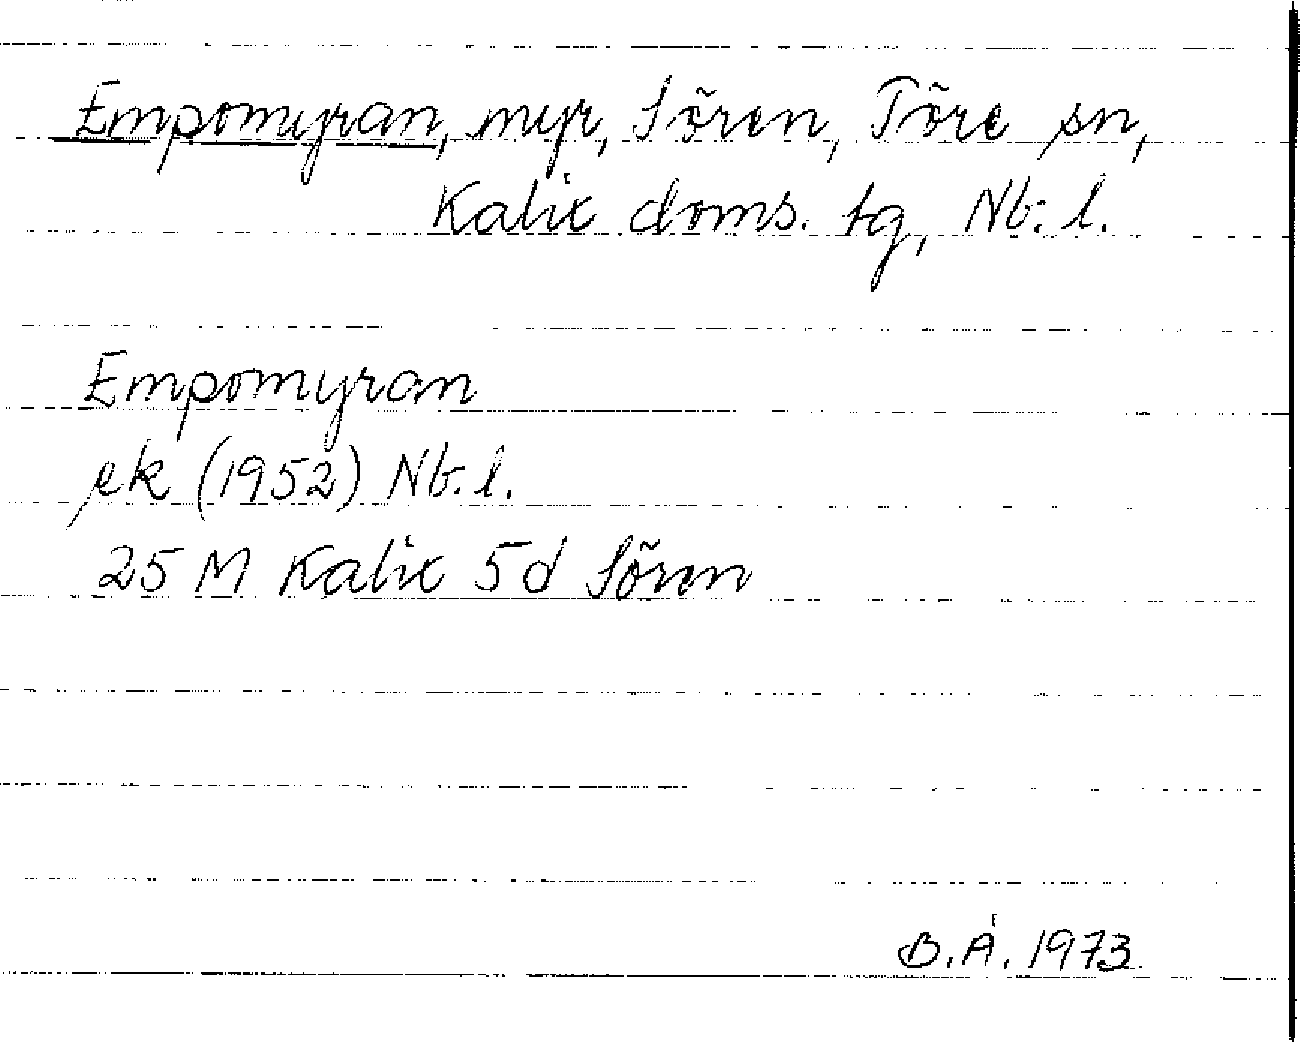 Empomyran, myr, Sören, Töre sn,
Kalix doms. tg, Nb. l.
Empomyran
ek (1952) Nb. l.
25 M Kalix 5d Sören
B.Å. 1973